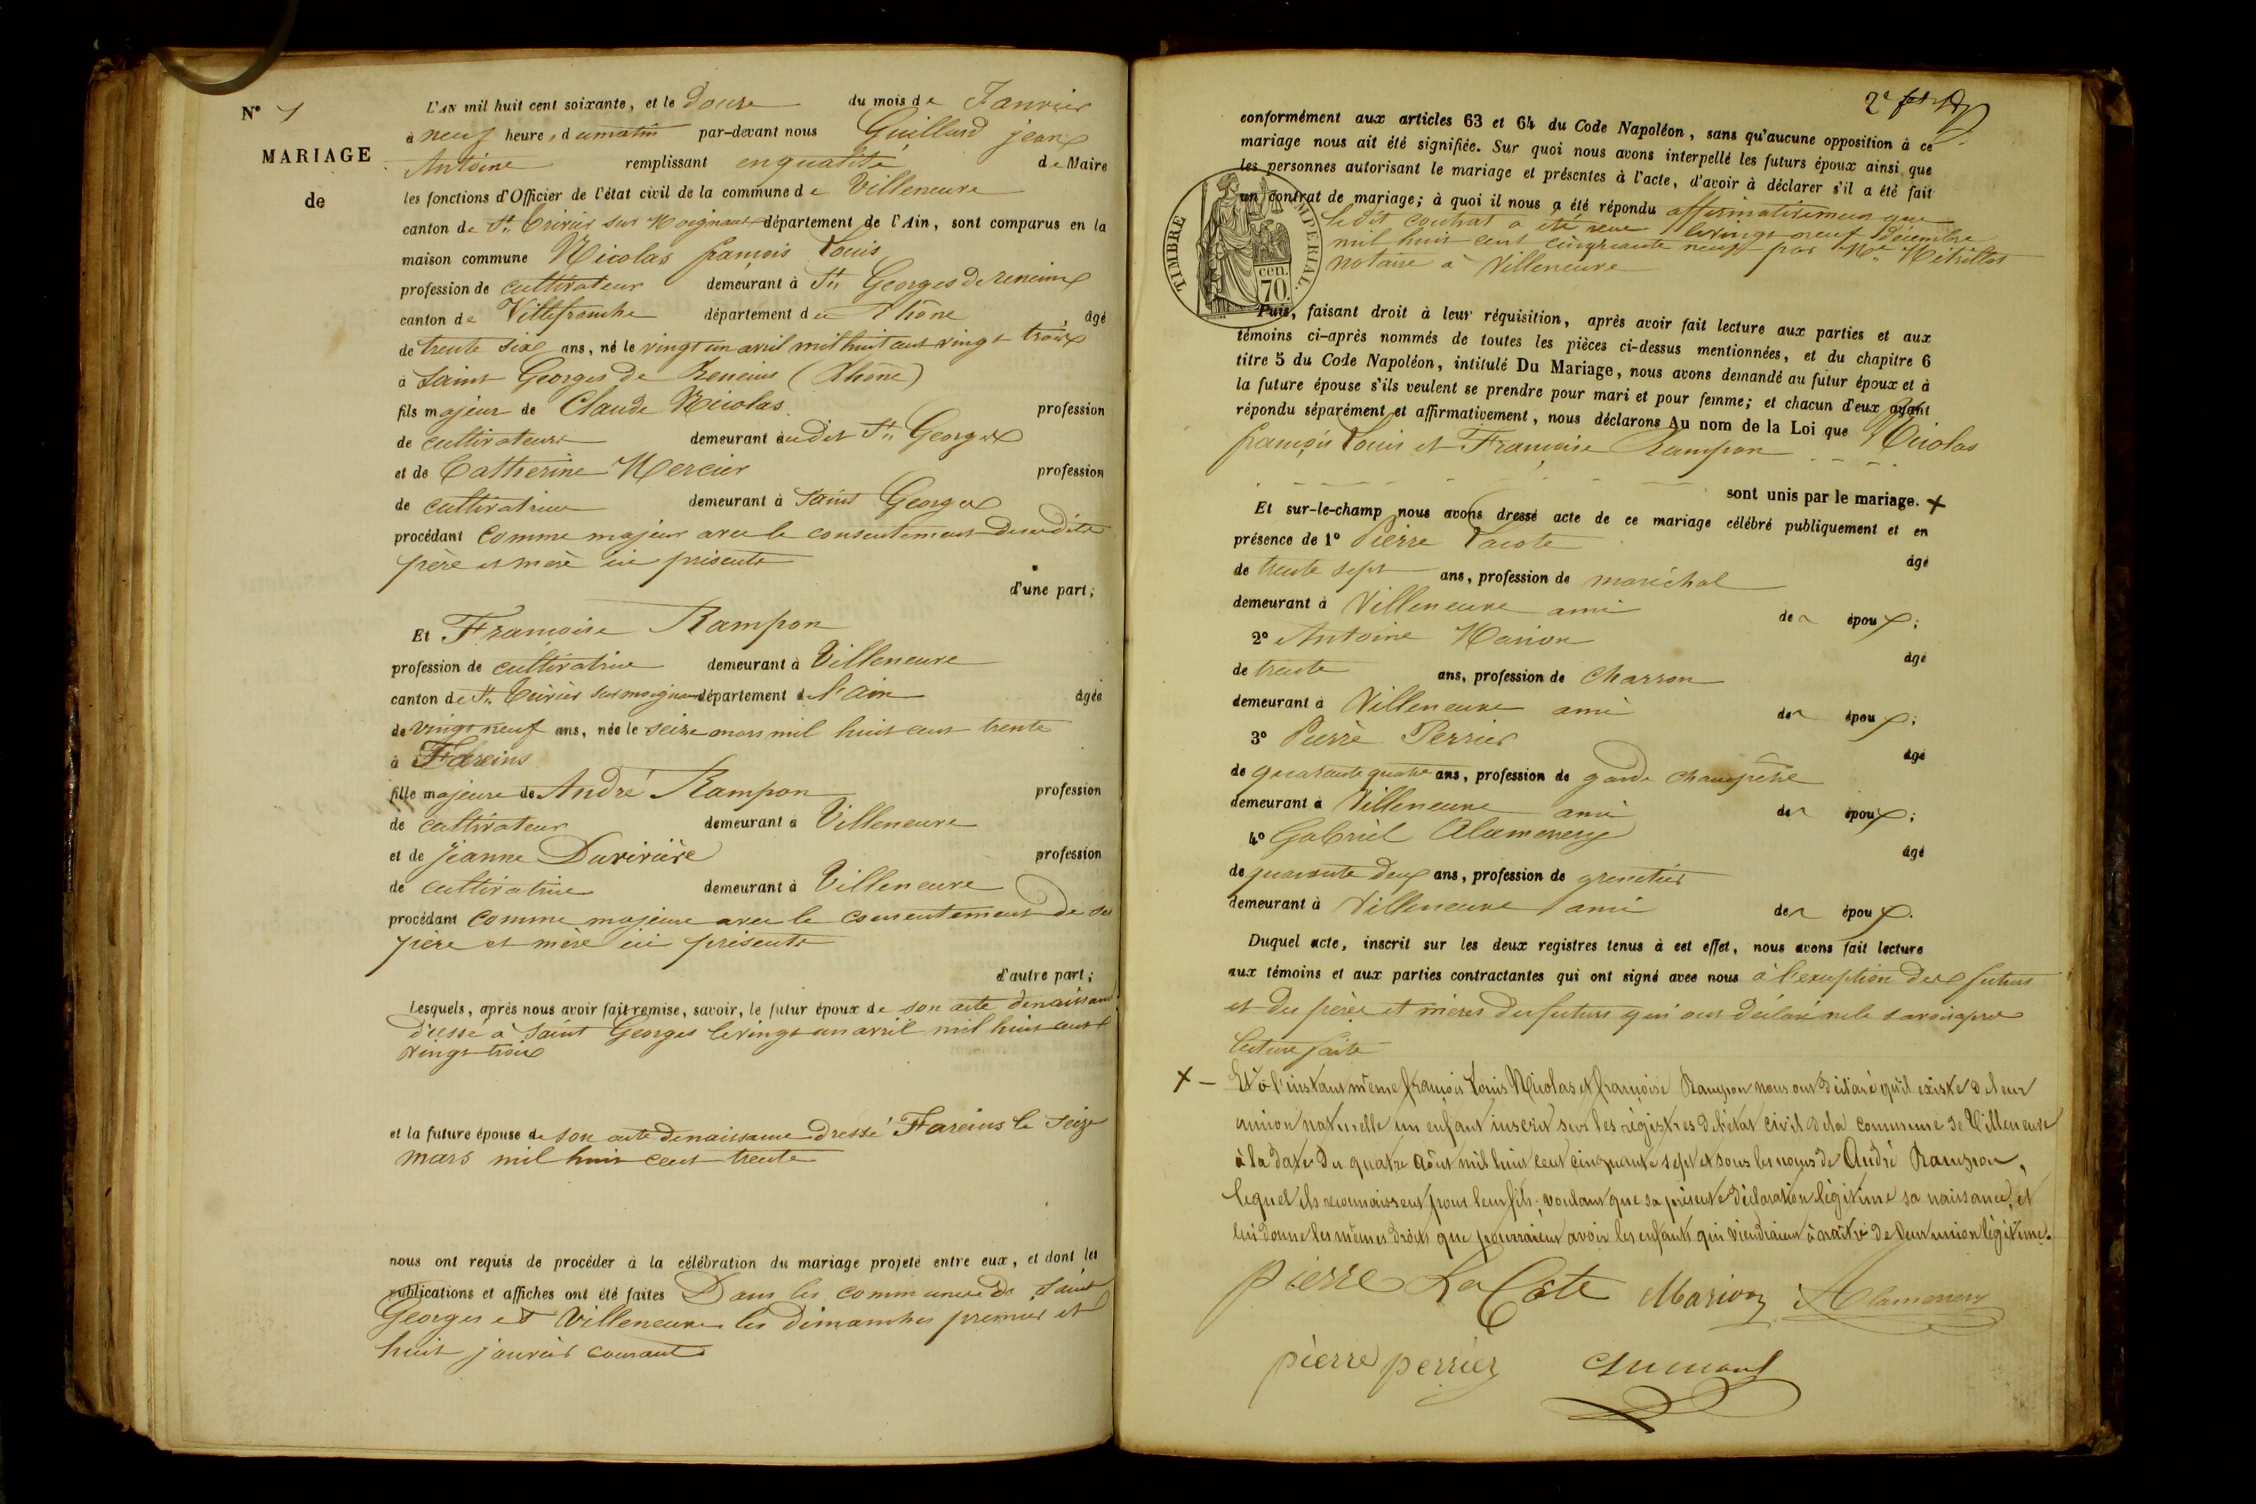 N° 1
MARIAGE
de
L'AN mil huit cent soixante, et le Douze du mois de Janvier
à neuf heures, du matin par-devant nous Guillard jean
Antoine remplissant en qualité de Maire
les fonctions d'Officier de l'état civil de la commune de Villeneuve
canton de St. Trivier sur Moignans département de l'Ain, sont comparus en la
maison commune Nicolas françois Louis
profession de cultivateur demeurant à St. Georges de reneins
canton de Villefranche département du Rhône, âgé
de trente six ans, né le vingt un avril mil huit cent vingt trois
à Saint Georges de Reneins (Rhône)
fils majeur de Claude Nicolas profession
de cultivateur demeurant audit St. Georges
et de Catherine Mercier profession
de cultivatrice demeurant à Saint Georges
procédant comme majeur avec le consentement de sesdits
père et mère ici présents
d'une part;
Et Françoise Rampon
profession de cultivatrice demeurant à Villeneuve
canton de St. Trivier sur moignans département de l'ain âgée
de vingt neuf ans, née le seize mars mil huit cent trente
à Fareins
fille majeure de André Rampon profession
de cultivateur demeurant à Villeneuve
et de Jeanne Durivière profession
de cultivatrice demeurant à Villeneuve
procédant comme majeure avec le consentement de ses
père et mère ici présents
d'autre part;
Lesquels, après nous avoir fait remise, savoir, le futur époux de son acte de naissance
dressé à Saint Georges le vingt un avril mil huit cent
vingt trois
et la future épouse de son acte de naissance dressé Fareins le seize
mars mil huit cent trente
nous ont requis de procéder à la célébration du mariage projeté entre eux, et dont les
publications et affiches ont été faites Dans les communes de Saint
Georges et Villeneuve les dimanches premier et
huit janvier courant
2e
conformément aux articles 63 et 64 du Code Napoléon, sans qu'aucune opposition à ce
mariage nous ait été signifiée. Sur quoi nous avons interpellé les futurs époux ainsi que
les personnes autorisant le mariage et présentes à l'acte, d'avoir à déclarer s'il a été fait
un contrat de mariage; à quoi il nous a été répondu affirmativement que
le dit contrat a été reçu le vingt neuf Décembre
mil huit cent cinquante neuf par Me
notaire à Villeneuve
TIMBRE IMPERIAL.
70 cen.
Puis, faisant droit à leur réquisition, après avoir fait lecture aux parties et aux
témoins ci-après nommés de toutes les pièces ci-dessus mentionnées, et du chapitre 6
titre 5 du Code Napoléon, intitulé Du Mariage, nous avons demandé au futur époux et à
la future épouse s'ils veulent se prendre pour mari et pour femme; et chacun d'eux ayant
répondu séparément et affirmativement, nous déclarons Au nom de la Loi que Nicolas
françois Louis et Françoise Rampon
sont unis par le mariage. X
Et sur-le-champ nous avons dressé acte de ce mariage célébré publiquement et en
présence de 1° Pierre Lacote
âgé
de trente sept ans, profession de maréchal
demeurant à Villeneuve ami des époux;
2° Antoine Marion
âgé
de trente ans, profession de Charron
demeurant à Villeneuve ami des époux;
3° Pierre Perrier
âgé
de quarante quatre ans, profession de garde champêtre
demeurant à Villeneuve ami des époux;
4° Gabriel Alamercery
âgé
de quarante deux ans, profession de grenetier
demeurant à Villeneuve ami des époux.
Duquel acte, inscrit sur les deux registres tenus à cet effet, nous avons fait lecture
aux témoins et aux parties contractantes qui ont signé avec nous à l'exception des futurs
et des pères et mères des futurs qui ont déclaré ne le savoir après
lecture faite
X — Et à l'instant même françois Louis Nicolas et françoise Rampon nous ont déclaré qu'il existe de leur
union naturelle un enfant inscrit sur les régistres de l'état civil de la commune de Villeneuve
à la date du quatre août mil huit cent cinquante sept et sous les noms de André Rampon,
lequel ils reconnaissent pour leur fils; voulant que sa présente déclaration légitime sa naissance, et
lui donne les mêmes droits que pourraient avoir les enfants qui viendraient à naître de leur union légitime.
pierre La Cote Marion Alamercery
pierre perrier